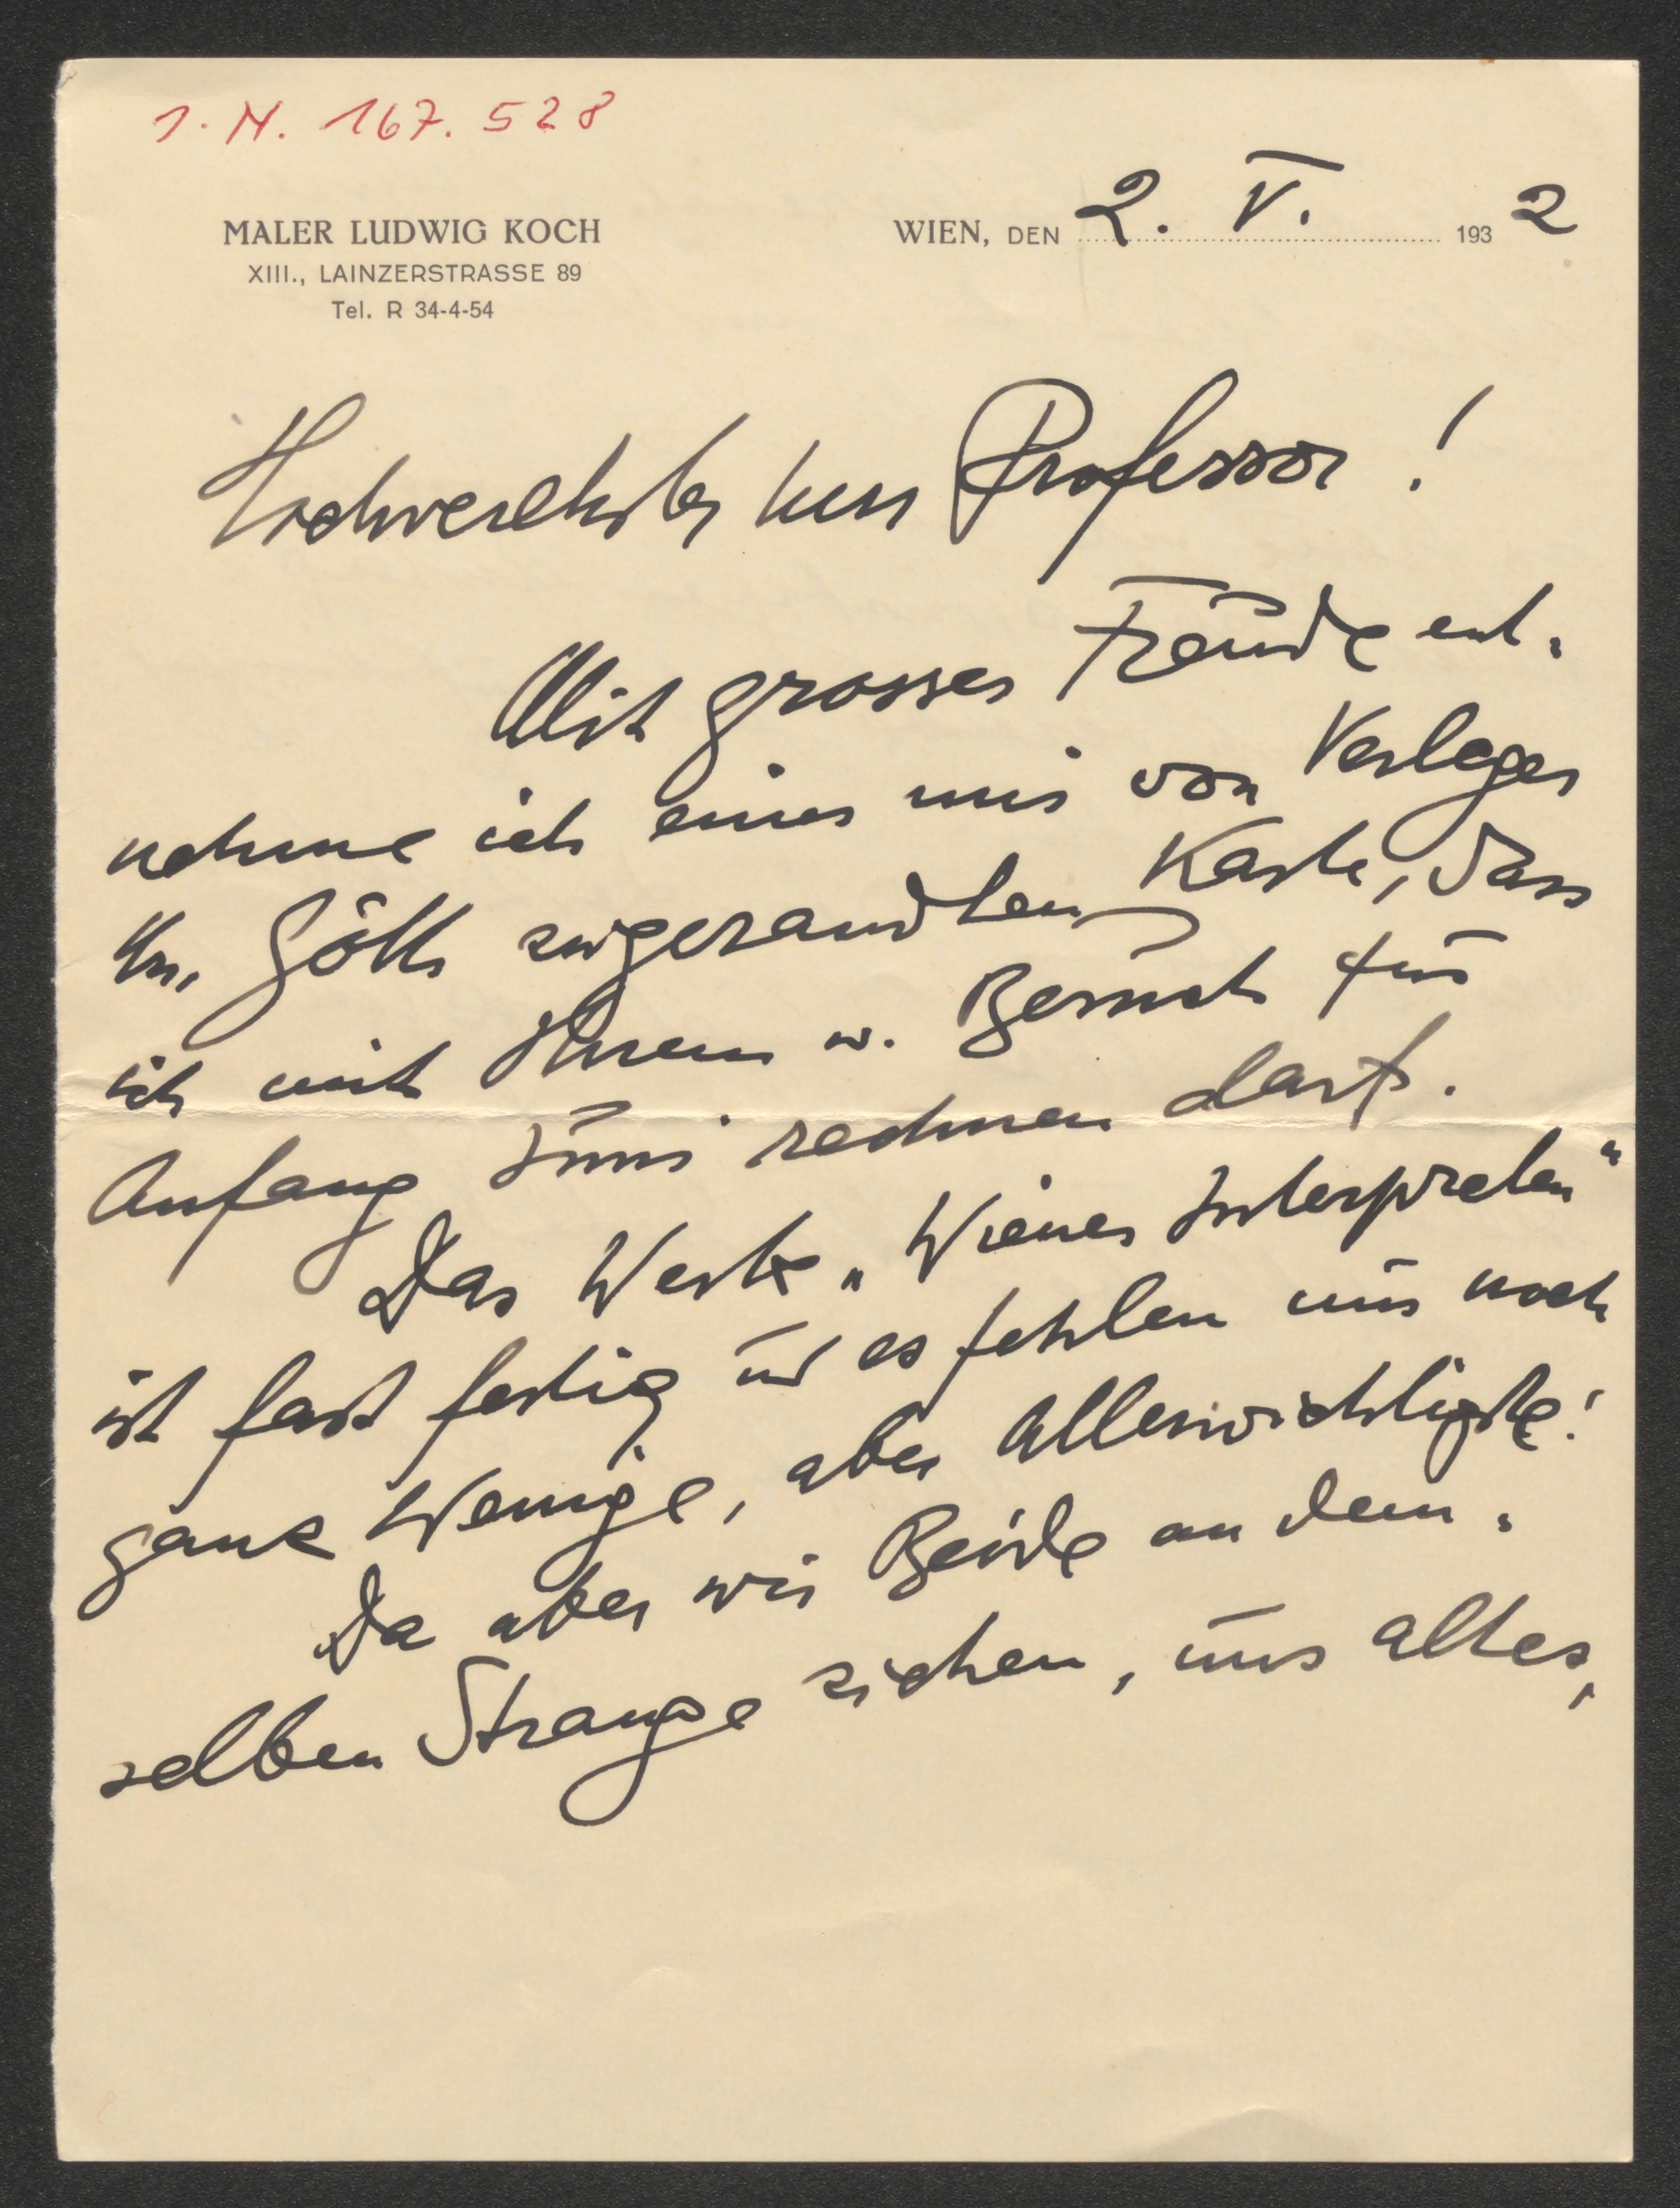 I. N. 167.528
MALER LUDWIG KOCH
XIII., LAINZERSTRASSE 89
Tel. R 34-4-54
WIEN, DEN 2. V. 1932
Hochverehrter Herr Professor!
Mit grosser Freude ent-
nehme ich einer mir von Verleger
Hn. Göth zugesandten Karte, dass
ich mit Ihrem w. Besuch für
Anfang Juni rechnen darf.
Das Werk „Wiener Interpreten“
ist fast fertig und es fehlen uns noch
ganz Wenige, aber Allerwichtigste!
Da aber wir Beide an dem-
selben Strange ziehen, uns alter,